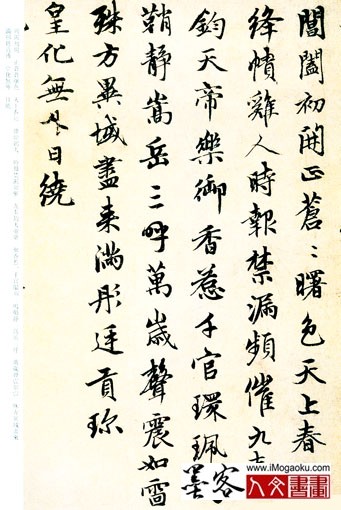 閶闔初開正蒼〻曙色天上春
絳幘雞人時報禁漏頻催九
鈞天帝樂御香惹千官環珮
鞘靜嵩岳三呼萬歲聲震如雷
殊方異域盡来滿彤廷貢珍
皇化無外日繞
墨客
www.iMogaoku.com
人文書畫